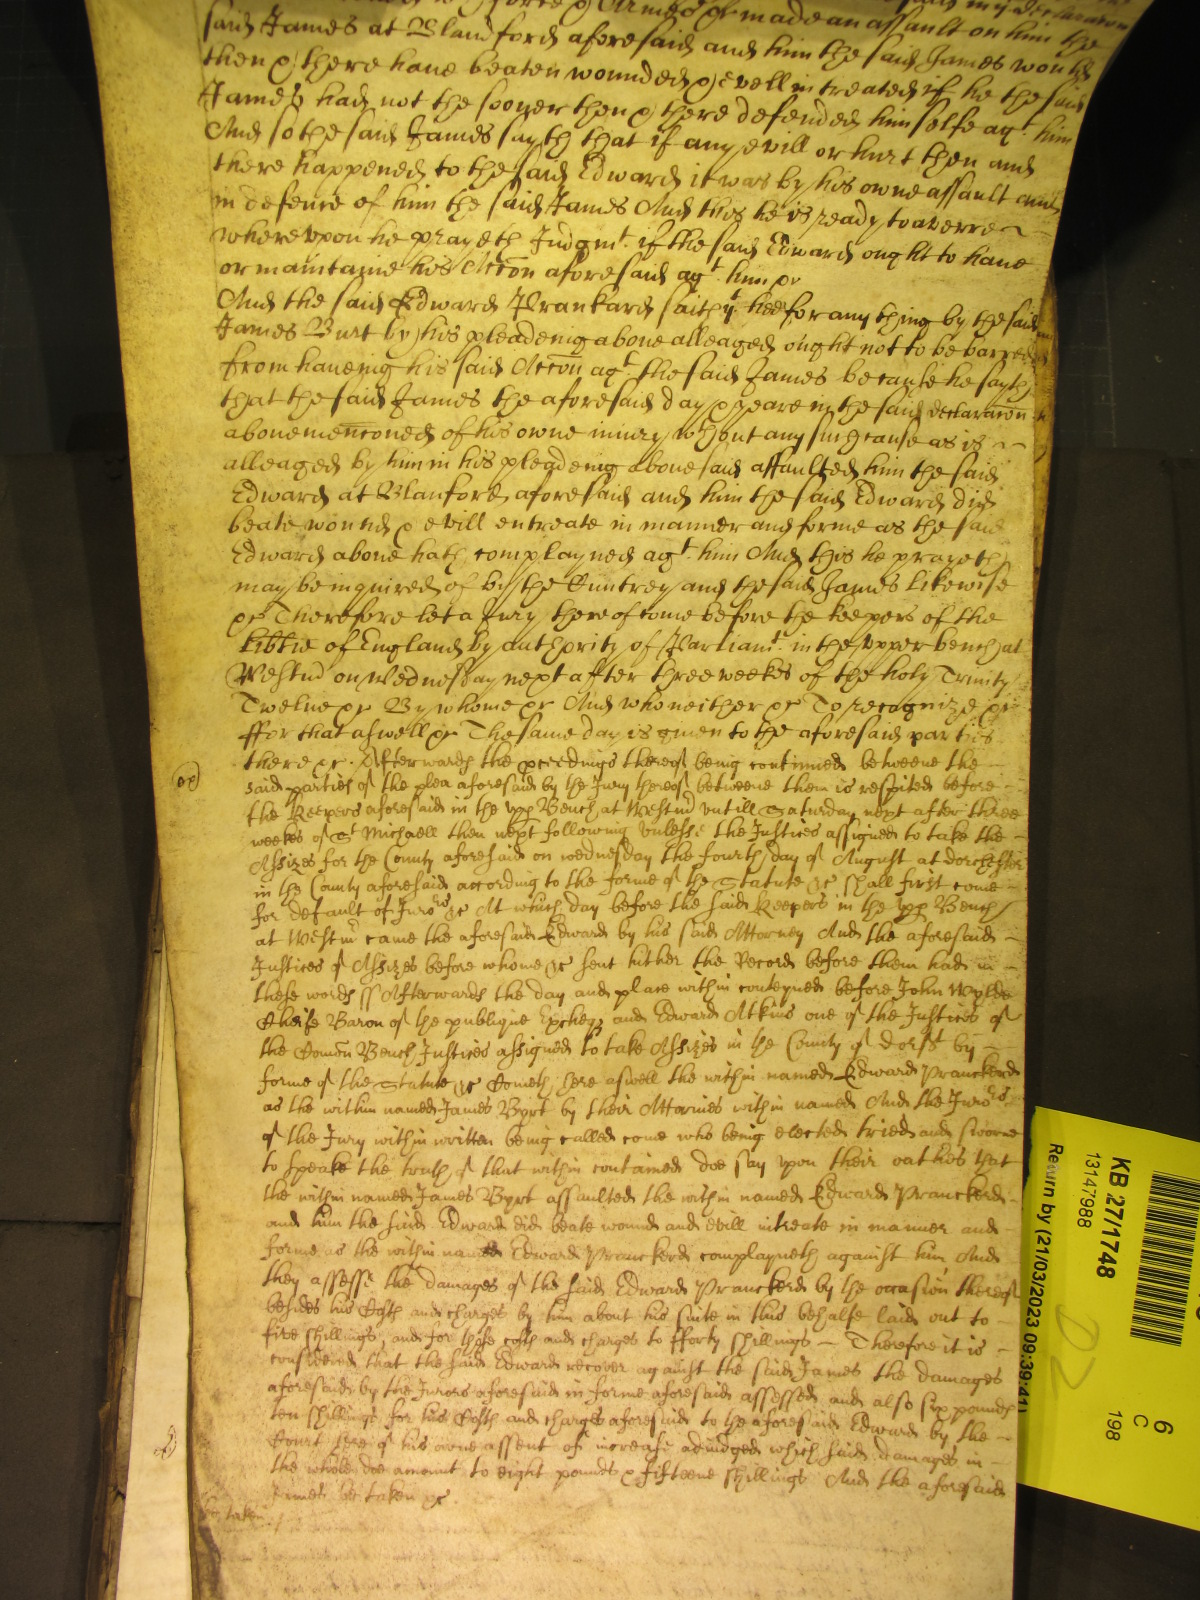 force & Armes &c made an assault on him the
said James at Blandford aforesaid and him the said James would
then & there have beaten wounded & evill intreated if he the said
James had not the sooner then & there defended himselfe agt. him
And so the said James sayth that if any evill or hurt then and
there happened to the said Edward it was by his owne assault and
in defence of him the said James And this he is ready to averre
whereupon he prayeth Judgmt. if the said Edward ought to have
or maintaine his Accōn aforesaid agt. him &c
And the said Edward Prankard saith yt hee for any thing by the said
James Burt by his pleadeing above alleaged ought not to be barred
from haveing his said Accōn agt. the said James because he sayth
that the said James the aforesaid day & yeare in the said declaracōn
abovemencōned of his owne iniury wthout any such cause as is
alleaged by him in his pleadeing abovesaid assaulted him the said
Edward at Blanford aforesaid and him the said Edward did
beate wound & evill entreate in manner and forme as the said
Edward above hath complayned agt. him And this he prayeth
may be inquired of by the Cuntrey and the said James likewise
&c Therefore let a Jury thereof come before the keepers of the
libtie of England by authority of Parliamt. in the upper bench at
Westmr on Wednesday next after three weekes of the holy Trinity
Twelve &c By whome &c And who neither &c To recognize &c
ffor that aswell &c The same day is given to the aforesaid parties
there &c Afterwards the proceedings thereof being continued betweene the
said parties of the plea aforesaid by the Jury thereof betweene them is respited before
the Keepers aforesaid in the upp Bench at Westmr untill Saturday next after three
weekes of St Michaell then next following unlesse the Justices assigned to take the
Assizes for the County aforesaid on wednesday the fourth day of August at dorchester
in the County aforesaid according to the forme of the Statute &c shall first come
for default of Jurors &c At which day before the said Keepers in the upp Bench
at Westmr came the aforesaid Edward by his said Attorney And the aforesaid
Justices of Assizes before whome &c sent hither the Record before them had in
these words ss Afterwards the day and place within conteyned before John Wylde
Cheife Baron of the publique Excheqr and Edward Atkins one of the Justices of
the Comōn Bench Justices assigned to take Assizes in the County of dorst by
forme of the Statute &c Cometh here aswell the within named Edward Pranckerd
as the within named James Byrt by their Attornies within named And the Jurors
of the Jury within written being called come who being elected tried and sworne
to speake the truth of that within contained doe say upon their oathes that
the within named James Byrt assaulted the within named Edward Pranckerd
and him the said Edward did beate wound and evill intreate in manner and
forme as the within named Edward Pranckerd complayneth against him And
they assesse the damages of the said Edward Pranckerd by the occasion thereof
besides his Costs and charges by him about his suite in this behalfe laid out to
five shillings and for those costs and charges to fforty shillings Therefore it is
considered that the said Edward recover against the said James the damages
aforesaid by the Jurors aforesaid in forme aforesaid assessed and also six pounds
ten shillings for his Costs and charges aforesaid to the aforesaid Edward by the
Court here of his owne assent of increase adiudged which said damages in
the whole doe amount to eight pounds & fifteene shillings And the aforesaid
James be taken &c
be taken
KB 27/1748
13147988
Return by (21/03/2023 09:39:41)
6
C
198
D2